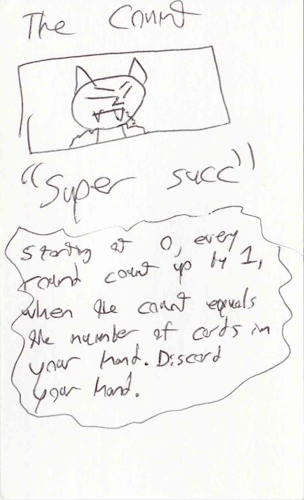 The Count
"Super succ"
Starting at 0, every
round count up by 1,
when the count equals
the number of cards in
your hand. Discard
your hand.